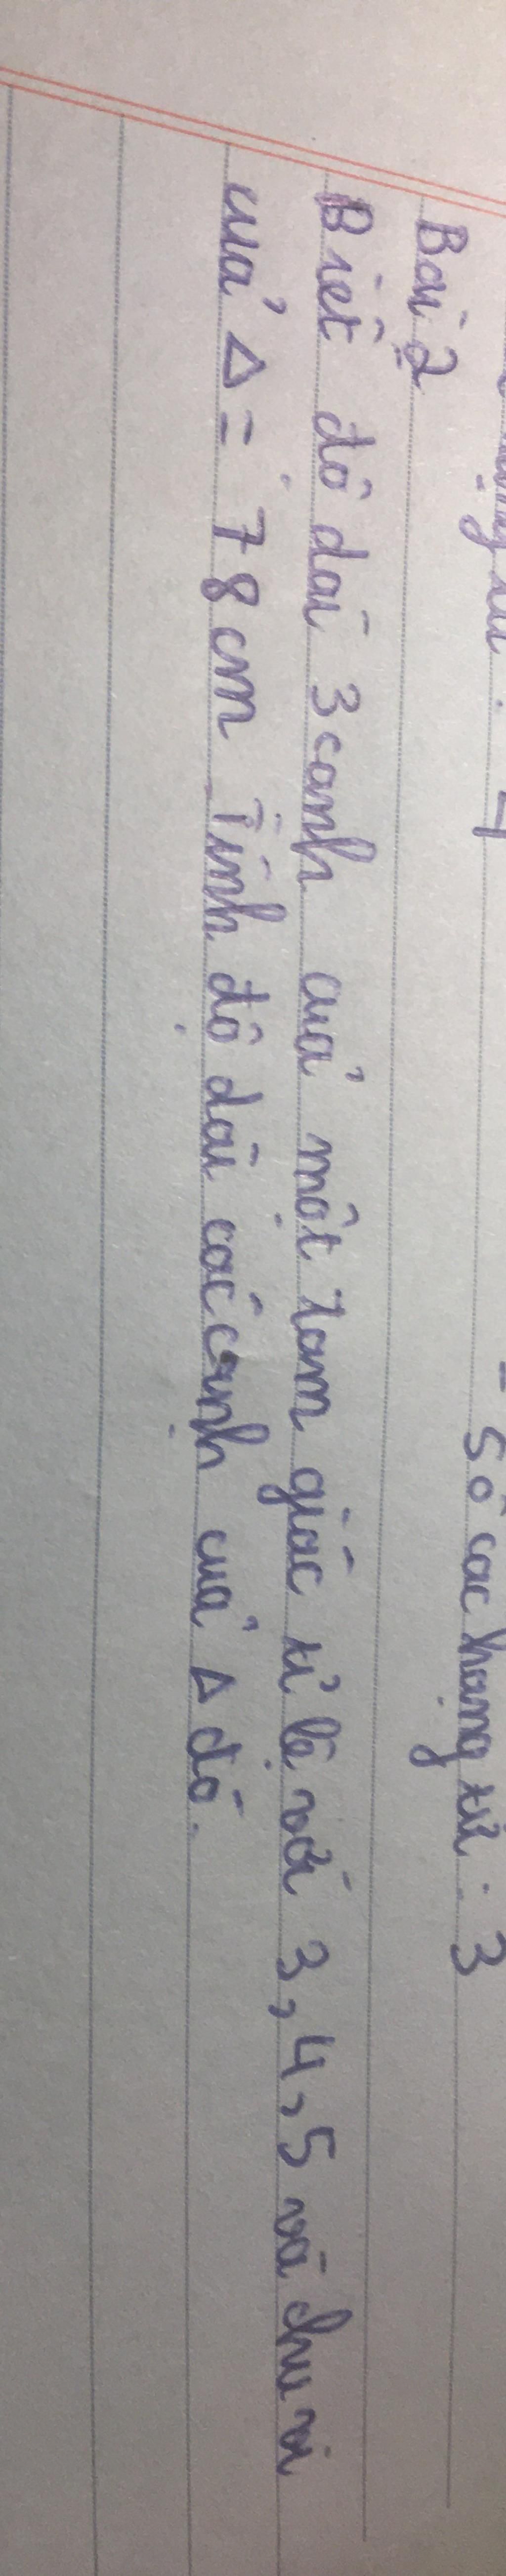 - số các hạng tử : 3
Bài 2
Biết độ dài 3 cạnh của một tam giác tỉ lệ với 3, 4, 5 và chu vi
của Δ = 78 cm Tính độ dài các cạnh của Δ đó.